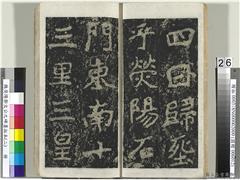 四日歸窆
乎熒陽石
門東南十
三里三皇
26